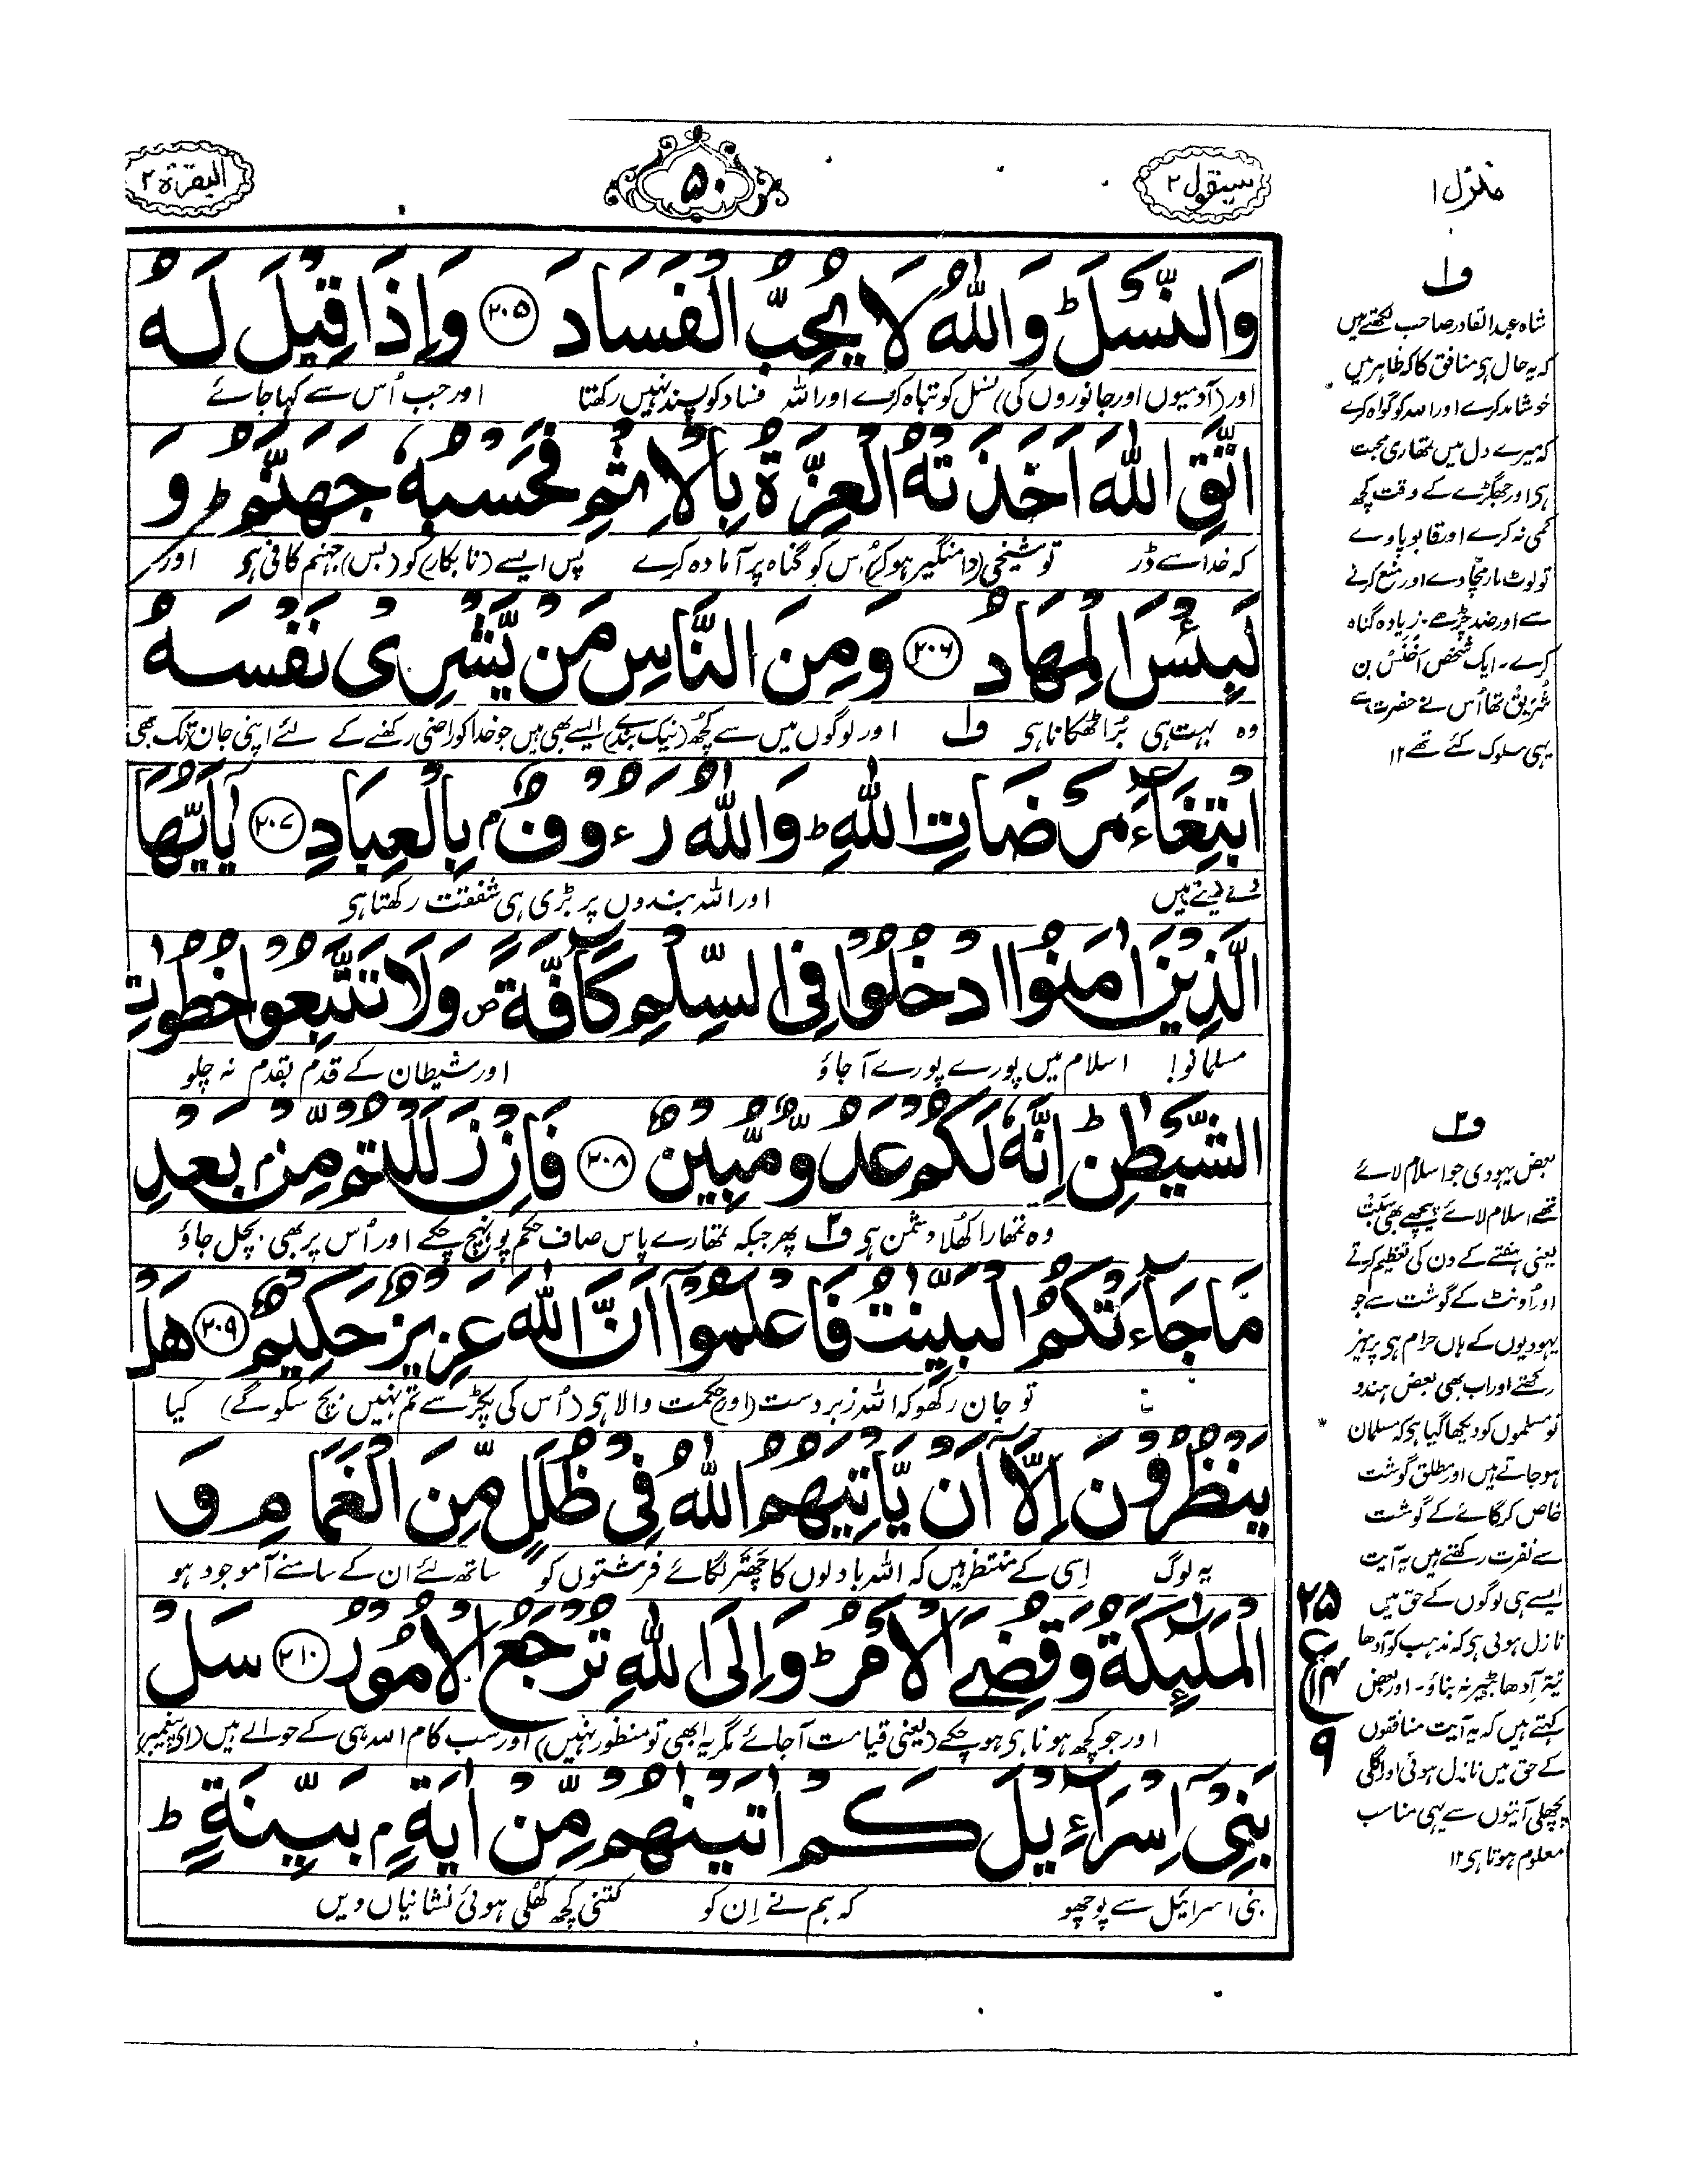 منزل ١
سیقول ٢
٥٠
البقرة ٢
وَالنَّسْلَ ؕ وَاللّٰهُ لَا یُحِبُّ الْفَسَادَ ﴿۲۰۵﴾ وَاِذَا قِیْلَ لَهُ
اور (آدمیوں اور جانوروں کی) نسل کو تباہ کرے اور اللہ فساد کو پسند نہیں رکھتا اور جب اُس سے کہا جائے
اتَّقِ اللّٰهَ اَخَذَتْهُ الْعِزَّةُ بِالْاِثْمِ فَحَسْبُهٗ جَهَنَّمُ ؕ وَ
کہ خدا سے ڈر تو شیخی (دامنگیر ہو کر) اُس کو گناہ پر آمادہ کرے پس ایسے (نابکار) کو (بس) جہنم کافی ہی اور
لَبِئْسَ الْمِهَادُ ﴿۲۰۶﴾ وَمِنَ النَّاسِ مَنْ یَّشْرِیْ نَفْسَهُ
وہ بہت ہی بُرا ٹھکانا ہی ف۱ اور لوگوں میں سے کچھ (نیک بندے) ایسے بھی ہیں جو خدا کو راضی رکھنے کے لئے اپنی جان تک بھی
ابْتِغَآءَ مَرْضَاتِ اللّٰهِ ؕ وَاللّٰهُ رَءُوْفٌۢ بِالْعِبَادِ ﴿۲۰۷﴾ یٰۤاَیُّهَا
دے دیتے ہیں اور اللہ بندوں پر بڑی ہی شفقت رکھتا ہی
الَّذِیْنَ اٰمَنُوا ادْخُلُوْا فِی السِّلْمِ كَآفَّةً ۪ وَلَا تَتَّبِعُوْا خُطُوٰتِ
مسلمانو! اسلام میں پورے پورے آ جاؤ اور شیطان کے قدم بقدم نہ چلو
الشَّیْطٰنِ ؕ اِنَّهٗ لَكُمْ عَدُوٌّ مُّبِیْنٌ ﴿۲۰۸﴾ فَاِنْ زَلَلْتُمْ مِّنْۢ بَعْدِ
وہ تمھارا کھُلا دشمن ہی ف۲ پھر جبکہ تمھارے پاس صاف حکم پونہچ چکے اور اُس پر بھی بچل جاؤ
مَا جَآءَتْكُمُ الْبَیِّنٰتُ فَاعْلَمُوْۤا اَنَّ اللّٰهَ عَزِیْزٌ حَكِیْمٌ ﴿۲۰۹﴾ هَلْ
تو جان رکھو کہ اللہ زبردست (اور) حکمت والا ہی (اُس کی پکڑ سے تم نہیں بچ سکو گے) کیا
یَنْظُرُوْنَ اِلَّاۤ اَنْ یَّاْتِیَهُمُ اللّٰهُ فِیْ ظُلَلٍ مِّنَ الْغَمَامِ وَ
یہ لوگ اِسی کے منتظر ہیں کہ اللہ بادلوں کا چھتر لگائے فرشتوں کو ساتھ لئے ان کے سامنے آ موجود ہو
الْمَلٰٓئِكَةُ وَقُضِیَ الْاَمْرُ ؕ وَاِلَی اللّٰهِ تُرْجَعُ الْاُمُوْرُ ﴿۲۱۰﴾ سَلْ
اور جو کچھ ہونا ہی ہو چکے (یعنی قیامت آجائے مگر یہ ابھی تو منظور نہیں) اور سب کام اللہ ہی کے حوالے ہیں (ای پیغمبر)
بَنِیْۤ اِسْرَآءِیْلَ كَمْ اٰتَیْنٰهُمْ مِّنْ اٰیَةٍۭ بَیِّنَةٍ ؕ
بنی اسرائیل سے پوچھو کہ ہم نے اِن کو کتنی کچھ کھُلی ہوئی نشانیاں دیں
ف۱
شاہ عبدالقادر صاحب لکھتے ہیں
کہ یہ حال ہی منافق کا کہ ظاہر میں
خوشامد کرے اور اللہ کو گواہ کرے
کہ میرے دل میں تمھاری محبت
ہی اور جھگڑے کے وقت کچھ
کمی نہ کرے اور قابو پاوے
تو لوٹ مار مچا دے اور منع کرنے
سے اور ضد چڑھے۔ زیادہ گناہ
کرے۔ ایک شخص اَخنَس بن
شُرَیق تھا اُس نے حضرت سے
یہی سلوک کئے تھے ۱۲
ف۲
بعض یہودی جو اسلام لائے
تھے اسلام لائے پیچھے بھی سَبت
یعنی ہفتے کے دن کی تعظیم کرتے
اور اُونٹ کے گوشت سے جو
یہودیوں کے ہاں حرام ہی پرہیز
رکھتے اور اب بھی بعض ہندو
نو مسلموں کو دیکھا گیا ہی کہ مسلمان
ہو جاتے ہیں اور مطلق گوشت
خاص کر گائے کے گوشت
سے نفرت رکھتے ہیں یہ آیت
ایسے ہی لوگوں کے حق میں
نازل ہوئی ہی کہ مذہب کو آدھا
تیتر آدھا بٹیر نہ بناؤ۔ اور بعض
کہتے ہیں کہ یہ آیت منافقوں
کے حق میں نازل ہوئی اور اگلی
پچھلی آیتوں سے یہی مناسب
معلوم ہوتا ہی ۱۲
۲۵
ع
۹